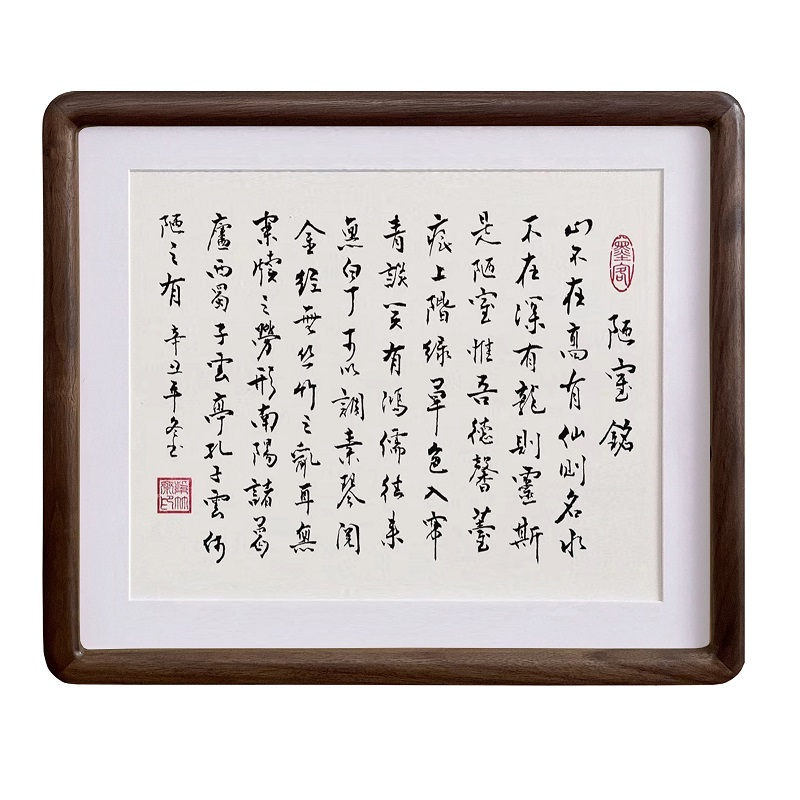 墨客
陋室銘
山不在高有仙則名水
不在深有龍則靈斯
是陋室惟吾德馨薹
痕上階綠草色入帘
青談笑有鴻儒往來
無白丁可以調素琴閱
金經無丝竹之亂耳無
案牘之勞形南陽諸葛
廬西蜀子雲亭孔子雲何
陋之有 辛丑年冬